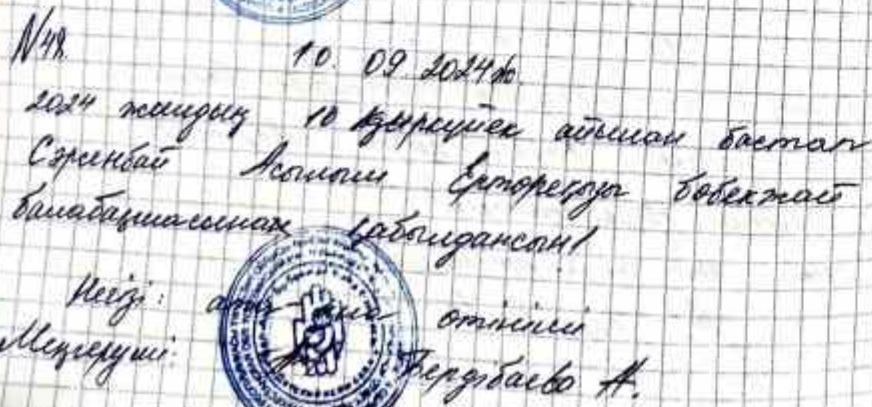 N48. 10. 09. 2024ж.
2024 жылдың 10 қыркүйек айынан бастап
Сәренбай Асылым Ертореқызы бөбекжай
балабақшасынан қабылдансын!
Негізі: ата-ана өтініші
Меңгеруші: Бердібаева А.